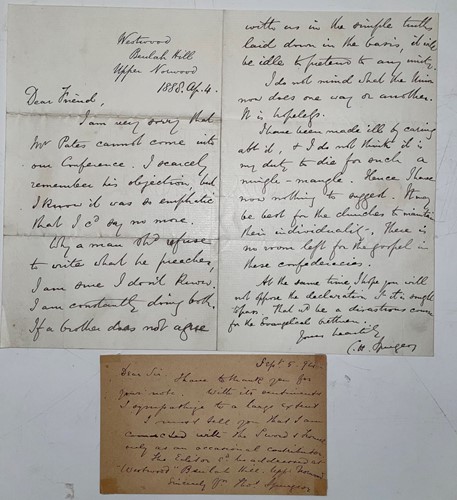 Westwood
Beulah Hill
Upper Norwood
1888. Ap. 4.
Dear Friend,
I am very sorry that
Mr Pates cannot come into
our Conference. I scarcely
remember his objection, but
I know it was so emphatic
that I cd say no more.
Why a man shd refuse
to write what he preaches,
I am sure I don't know.
I am constantly doing both.
If a brother does not agree
with us in the simple truths
laid down in the basis, it wd
be idle to pretend to any unity.
I do not mind what the Union
now does one way or another.
It is hopeless.
I have been made ill by caring
abt it, & I do not think it is
my duty to die for such a
mingle-mangle. Hence I have
now nothing to suggest. It may
be best for the churches to maintain
their individuality. There is
no room left for the gospel in
these confederacies.
At the same time, I hope you will
not oppose the declaration
That wd be a disastrous course
for the Evangelical brethren.
Yours heartily
C. H. Spurgeon
Sept. 5. 94
Dear Sir I have to thank you for
your note. With its sentiments
I sympathize to a large extent
I must tell you that I am
connected with the Sword & Trowel
only as an occasional contributor
The Editor is to be addressed at
"Westwood" Beulah Hill. Upp. Norwood
Sincerely Yrs Thos. Spurgeon